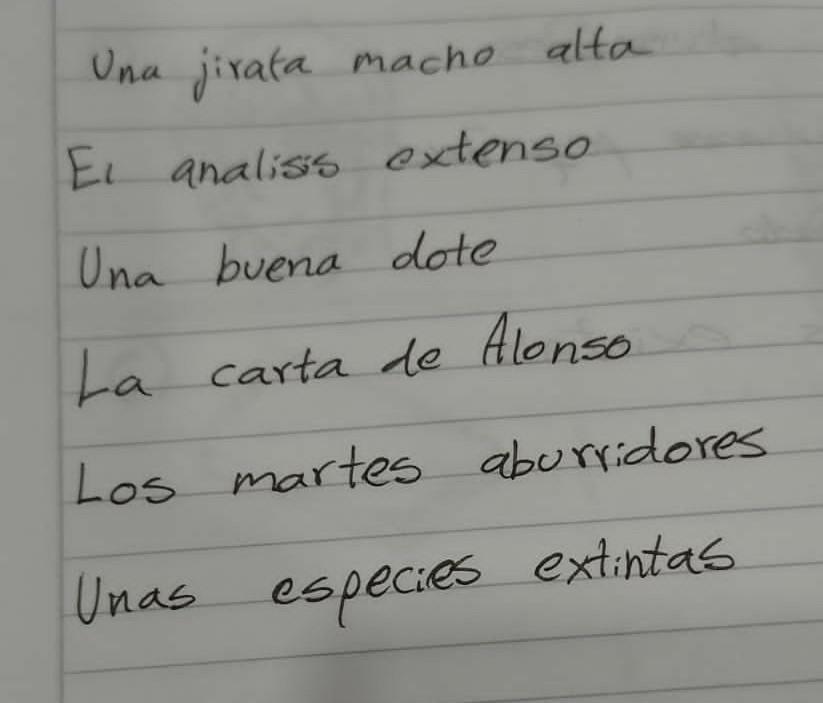 Una jirafa macho alta
El analisis extenso
Una buena dote
La carta de Alonso
Los martes aburridores
Unas especies extintas